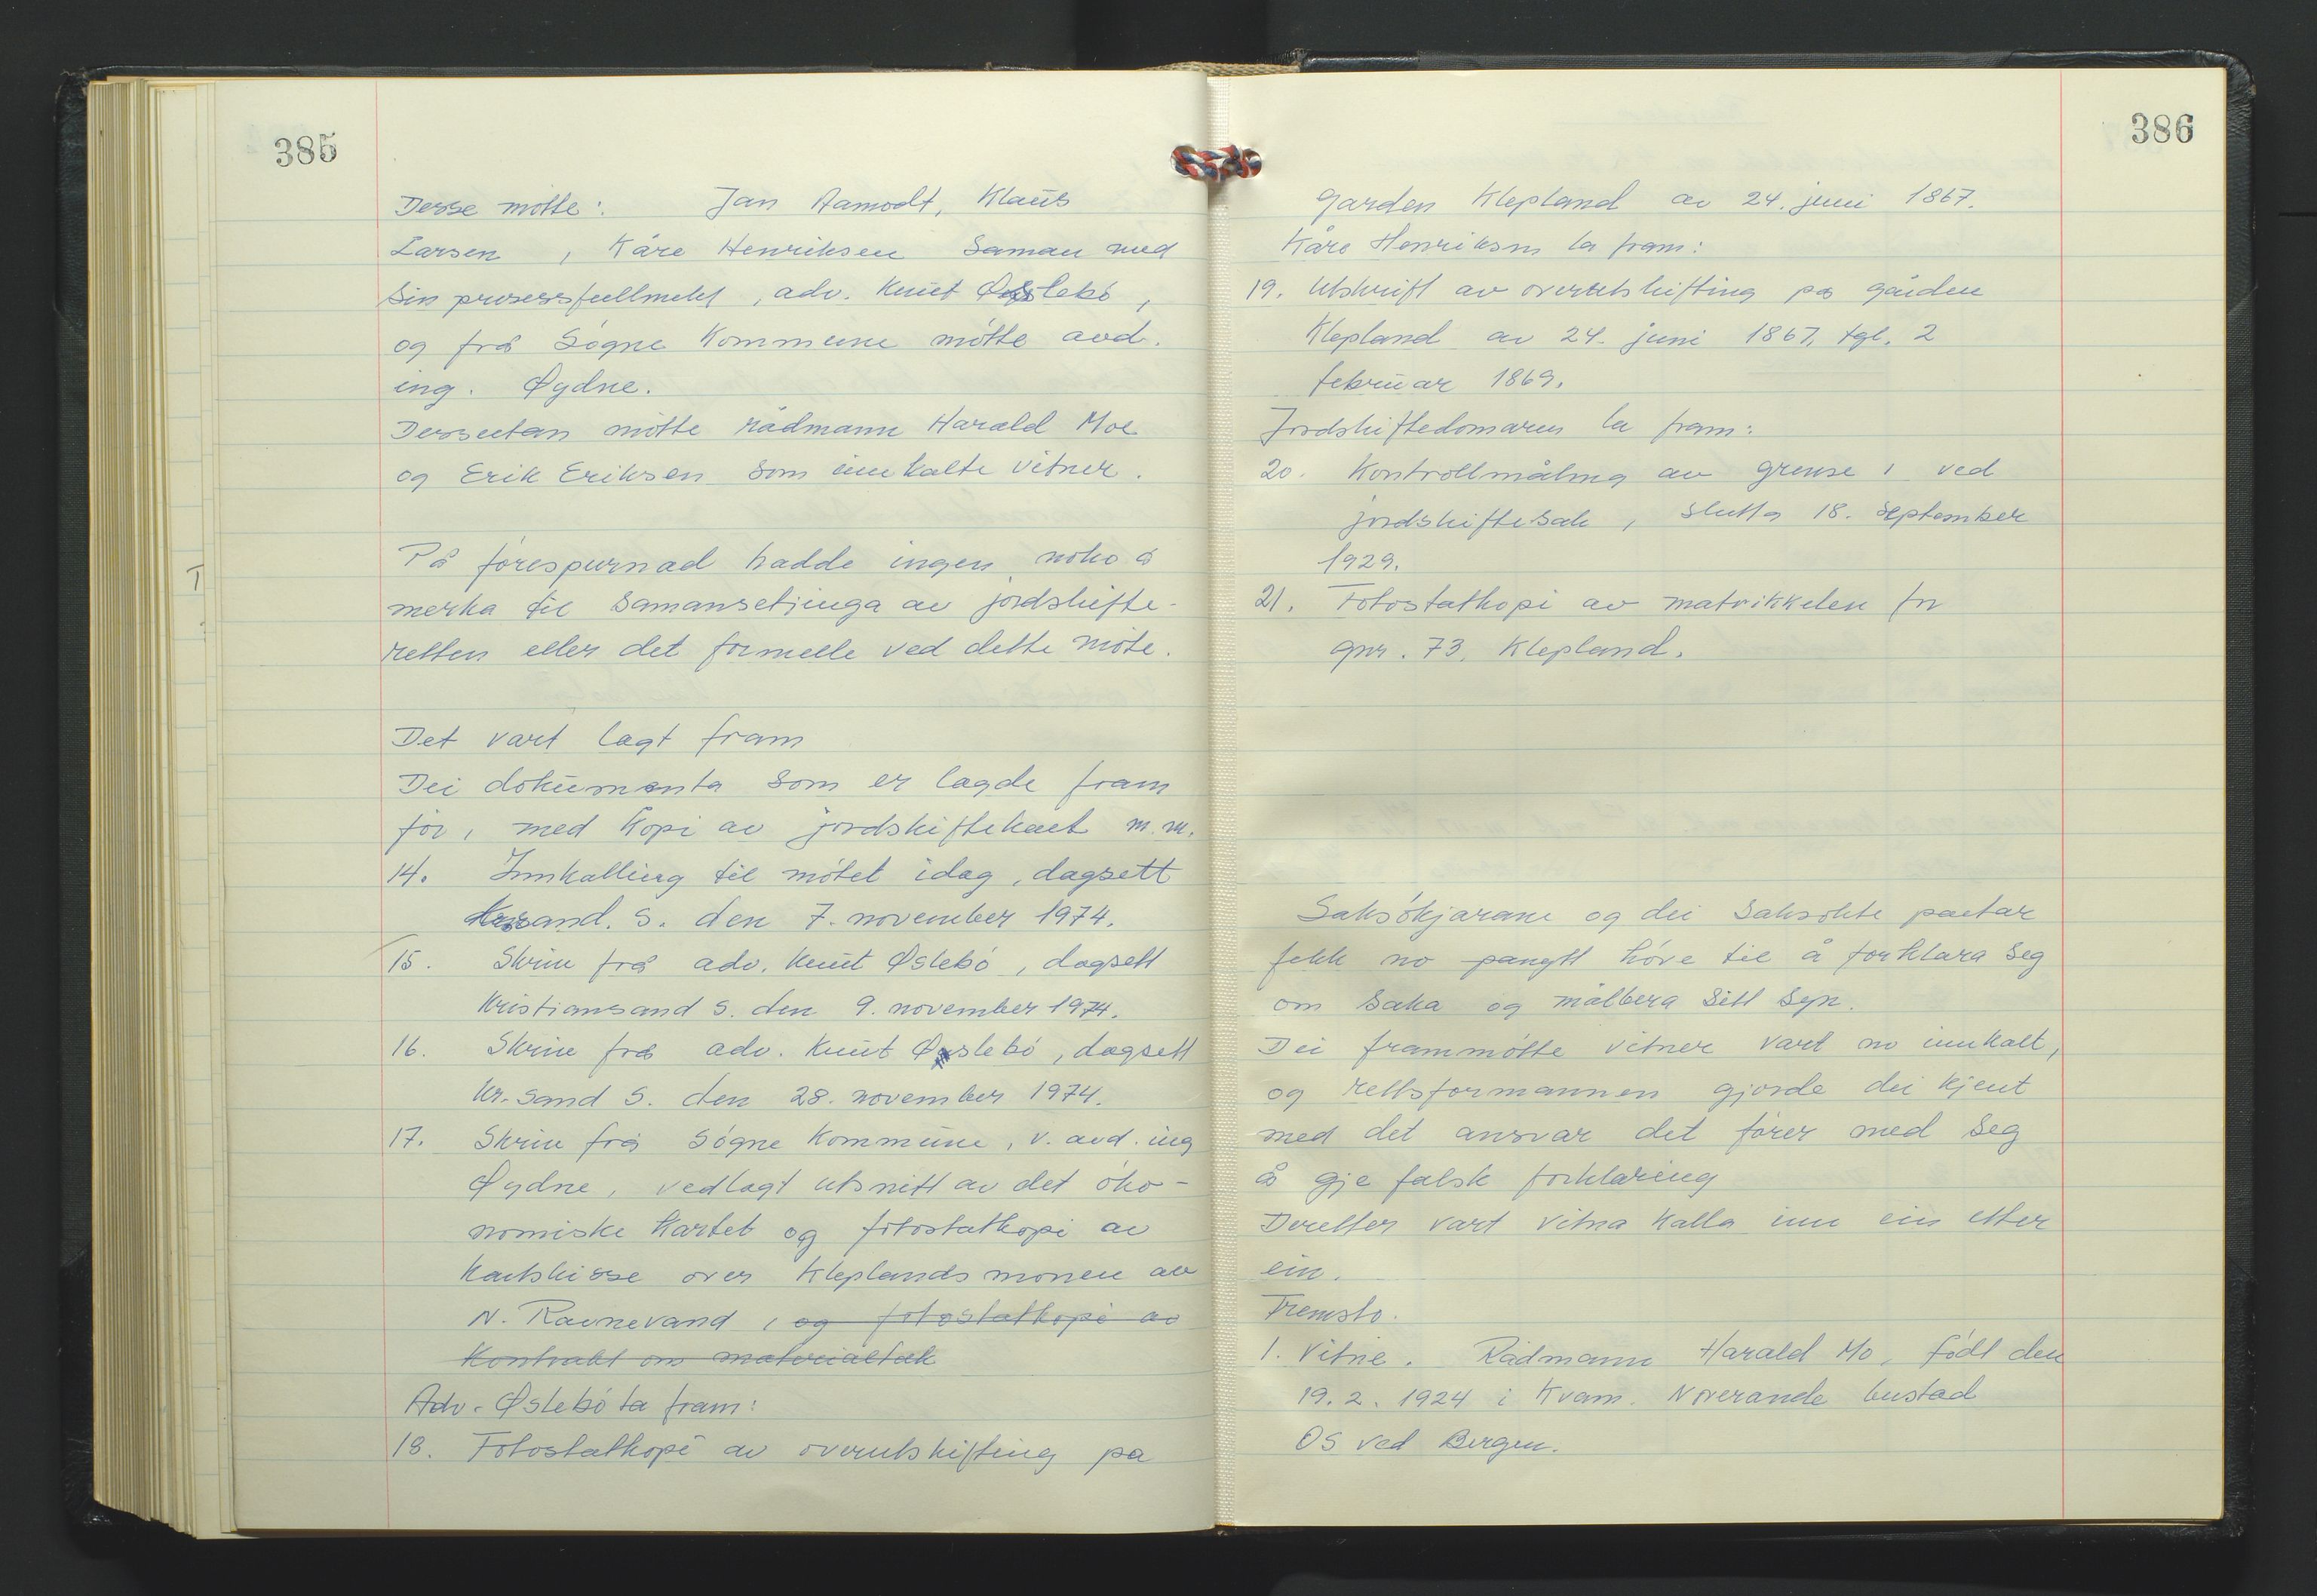 385
Desse møtte: Jan Aamodt, Klaus
Larsen, Kåre Henriksen saman med
sin prosessfullmekt, adv. Knut Øslebø,
og frå Søgne Kommune møtte avd.
ing. Øydne.
Dessutan møtte rådmann Harald Moe
og Erik Eriksen som innkalte vitner.
På førespurnad hadde ingen noko å
merka til samansetjinga av jordskifte-
retten eller det formelle ved dette møte.
Det vart lagt fram
Dei dokumenta som er lagde fram
før, med kopi av jordskiftekart m.m.
14. Innkalling til møtet idag, dagsett
Kr.sand. S. den 7. november 1974.
15. Skriv frå adv. Knut Øslebø, dagsett
Kristiansand S. den 9. november 1974.
16. Skriv frå adv. Knut Øslebø, dagsett
Kr.sand S. den 28. november 1974.
17. Skriv frå Søgne Kommune, v. avd. ing
Øydne, vedlagt utsnitt av det øko-
nomiske kartet og fotostatkopi av
kartskisse over Kleplandsmonen av
N. Ravnevand, og fotostatkopi av
Kontrakt om materialtak
Adv. Øslebø la fram:
18. Fotostatkopi av overutskifting på
386
garden Klepland av 24. juni 1867.
Kåre Henriksen la fram:
19. Utskrift av overutskifting på gården
Klepland av 24. juni 1867, tgl. 2
februar 1869.
Jordskiftedomaren la fram:
20. Kontrollmåling av grense 1 ved
jordskiftesak, slutta 18. september
1929.
21. Fotostatkopi av matrikkelen for
gnr. 73, Klepland.
Saksøkjarane og dei saksøkte partar
fekk no pånytt høve til å forklara seg
om saka og målbera sitt syn.
Dei frammøtte vitner vart no innkalt,
og rettsformannen gjorde dei kjent
med det ansvar det fører med seg
å gje falsk forklaring
Deretter vart vitna kalla inn ein etter
ein.
Fremsto.
1. Vitne. Rådmann Harald Mo, født den
19.2. 1924 i Kvam. Noverande bustad
OS ved Bergen.